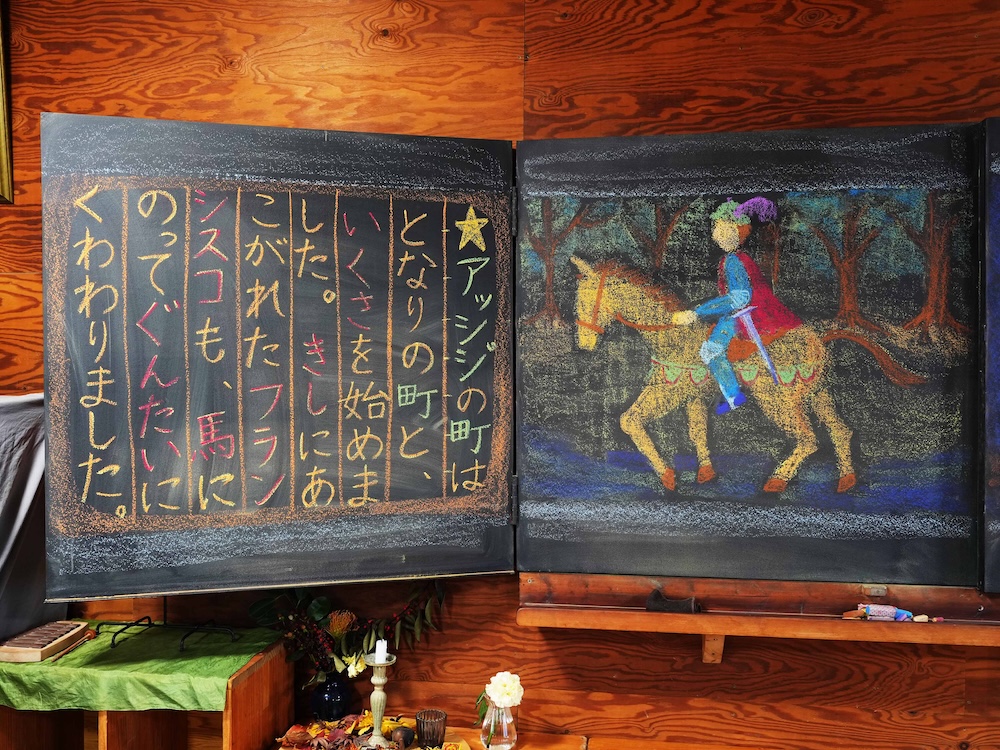 ★アッシジの町は
となりの町と、
いくさを始めま
した。きしにあ
こがれたフラン
シスコも、馬に
のってぐんたいに
くわわりました。